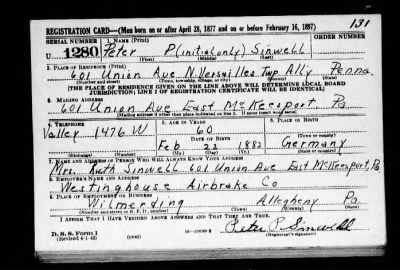 131
REGISTRATION CARD—(Men born on or after April 28, 1877 and on or before February 16, 1897)
SERIAL NUMBER 1. NAME (Print) ORDER NUMBER
U 1280 Peter P(initial only) Sinwell
(First) (Middle) (Last)
2. PLACE OF RESIDENCE (Print)
601 Union Ave N. Versailles Twp Ally Penna.
(Number and street) (Town, township, village, or city) (County) (State)
[THE PLACE OF RESIDENCE GIVEN ON THE LINE ABOVE WILL DETERMINE LOCAL BOARD
JURISDICTION; LINE 2 OF REGISTRATION CERTIFICATE WILL BE IDENTICAL]
3. MAILING ADDRESS
601 Union Ave East McKeesport Pa.
[Mailing address if other than place indicated on line 2. If same insert word same]
4. TELEPHONE 5. AGE IN YEARS 6. PLACE OF BIRTH
Valley 1476 W 60
DATE OF BIRTH
Feb. 22 1882 Germany
(Exchange) (Number) (Mo.) (Day) (Yr.) (State or country)
7. NAME AND ADDRESS OF PERSON WHO WILL ALWAYS KNOW YOUR ADDRESS
Mrs. Ruth Sinwell 601 Union Ave East McKeesport, Pa
8. EMPLOYER'S NAME AND ADDRESS
Westinghouse Airbrake Co
9. PLACE OF EMPLOYMENT OR BUSINESS
Wilmerding Allegheny Pa.
(Number and street or R. F. D. number) (Town) (County) (State)
I AFFIRM THAT I HAVE VERIFIED ABOVE ANSWERS AND THAT THEY ARE TRUE.
D. S. S. Form 1
(Revised 4-1-42) (over) Peter P. Sinwell
(Registrant's signature)